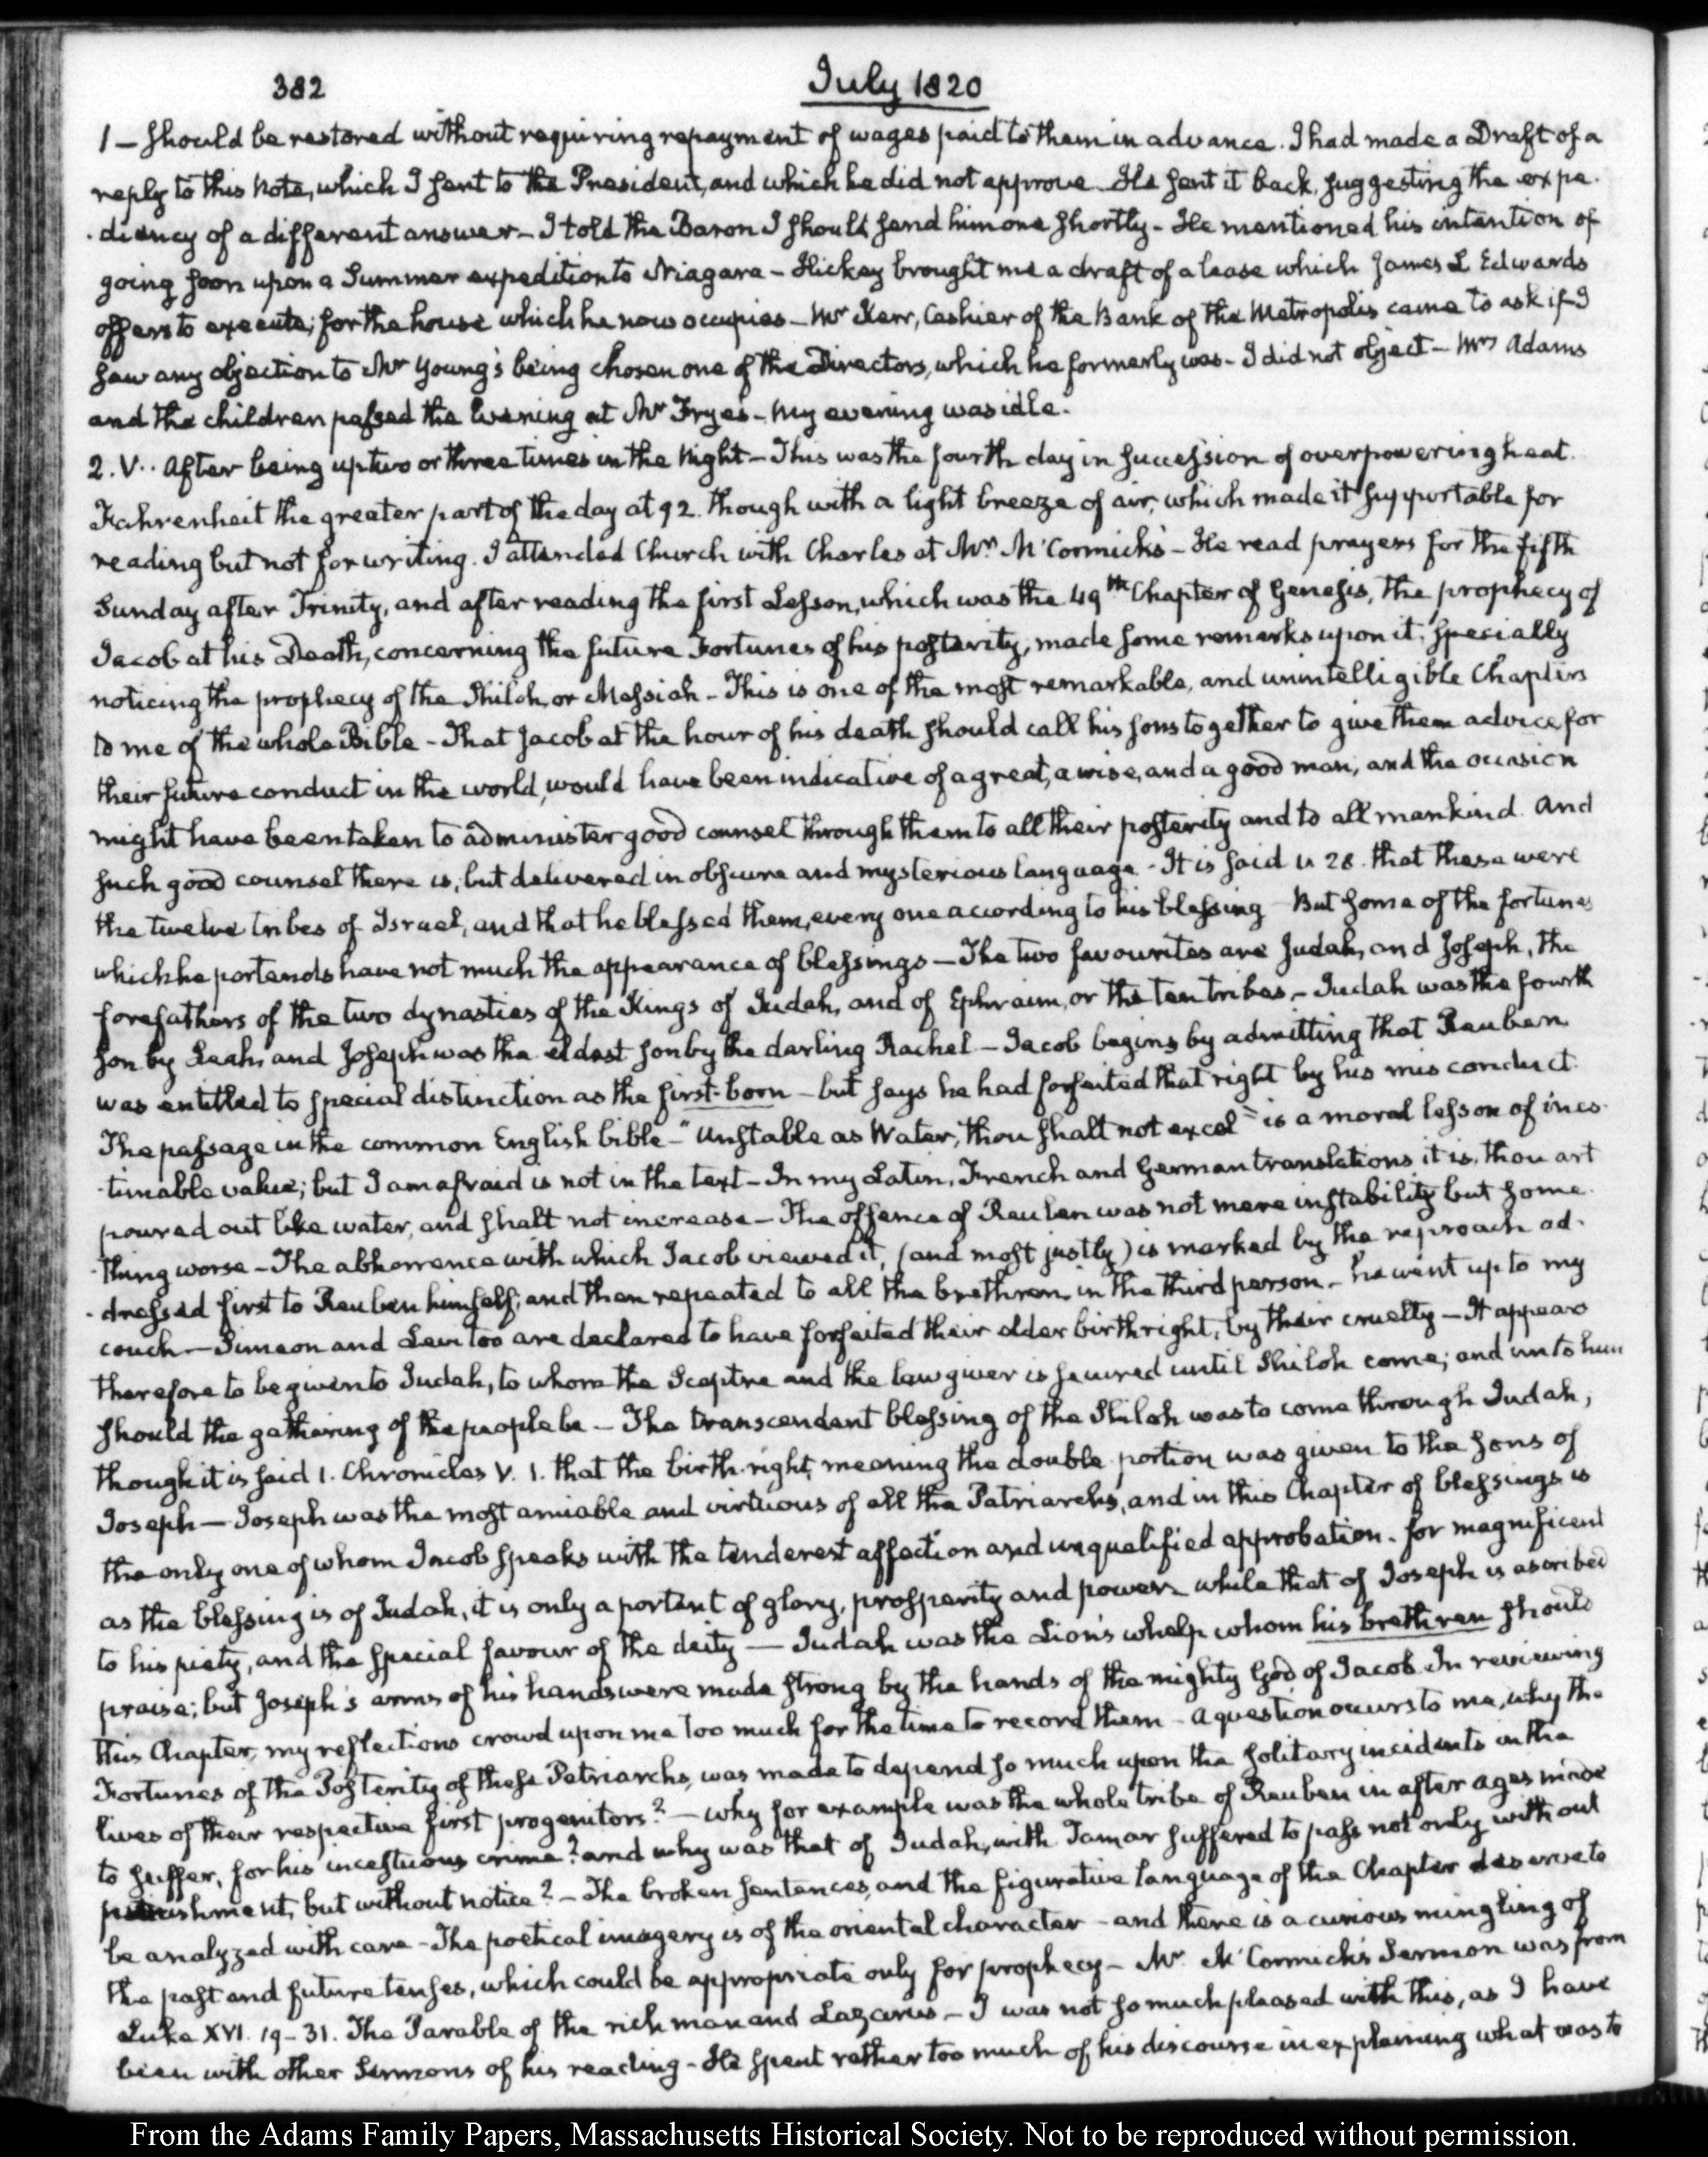 382
July 1820
1 – should be restored without requiring repayment of wages paid to them in advance. I had made a Draft of a
reply to this Note, which I sent to the President, and which he did not approve. He sent it back, suggesting the expe-
-diency of a different answer – I told the Baron I should send him one shortly – He mentioned his intention of
going soon upon a Summer expedition to Niagara – Hickey brought me a draft of a lease which James L Edwards
offers to execute; for the house which he now occupies – Mr Kerr, Cashier of the Bank of the Metropolis came to ask if I
saw any objection to Mr Young's being chosen one of the Directors, which he formerly was – I did not object – Mrs Adams
and the children passed the Evening at Mr Frye's – My evening was idle.
2. V.. After being up two or three times in the Night – This was the fourth day in succession of overpowering heat.
Fahrenheit the greater part of the day at 92. though with a light breeze of air, which made it supportable for
reading but not for writing. I attended Church with Charles at Mr McCormick's – He read prayers for the fifth
Sunday after Trinity, and after reading the first Lesson, which was the 49th Chapter of Genesis, the prophecy of
Jacob at his Death, concerning the future Fortunes of his posterity, made some remarks upon it, specially
noticing the prophecy of the Shiloh, or Messiah – This is one of the most remarkable, and unintelligible Chapters
to me of the whole Bible – That Jacob at the hour of his death should call his sons together to give them advice for
their future conduct in the world, would have been indicative of a great, a wise, and a good man, and the occasion
might have been taken to administer good counsel through them to all their posterity and to all mankind. And
such good counsel there is, but delivered in obscure and mysterious language – It is said v. 28. that these were
the twelve tribes of Israel, and that he blessed them, every one according to his blessing But some of the fortunes
which he portends have not much the appearance of blessings – The two favourites are Judah, and Joseph, the
forefathers of the two dynasties of the Kings of Judah, and of Ephraim, or the ten tribes – Judah was the fourth
son by Leah, and Joseph was the eldest son by the darling Rachel – Jacob begins by admitting that Reuben
was entitled to special distinction as the first-born – but says he had forfeited that right by his misconduct.
The passage in the common English bible – "Unstable as Water, thou shalt not excel" is a moral lesson of ines-
-timable value; but I am afraid is not in the text – In my Latin, French and German translations it is, thou art
poured out like water, and shalt not increase – The offence of Reuben was not mere instability but some-
-thing worse – The abhorrence with which Jacob viewed it, (and most justly) is marked by the reproach ad-
-dressed first to Reuben himself; and then repeated to all the brethren in the third person – he went up to my
couch – Simeon and Levi too are declared to have forfeited their elder birthright, by their cruelty – It appears
therefore to be given to Judah, to whom the Sceptre and the lawgiver is secured until Shiloh come; and unto him
should the gathering of the people be – The transcendent blessing of the Shiloh was to come through Judah,
though it is said 1. Chronicles V. 1. that the birth-right, meaning the double portion was given to the sons of
Joseph – Joseph was the most amiable and virtuous of all the Patriarchs, and in this Chapter of blessings is
the only one of whom Jacob speaks with the tenderest affection and unqualified approbation. for magnificent
as the blessing is of Judah, it is only a portent of glory, prosperity and power while that of Joseph is ascribed
to his piety, and the special favour of the deity – Judah was the Lion's whelp whom his brethren should
praise; but Joseph's arms of his hands were made strong by the hands of the mighty God of Jacob. In reviewing
this Chapter, my reflections crowd upon me too much for the time to record them – A question occurs to me, why the
Fortunes of the Posterity of these Patriarchs, was made to depend so much upon the solitary incidents in the
lives of their respective first progenitors? – why for example was the whole tribe of Reuben in after ages made
to suffer, for his incestuous crime? and why was that of Judah, with Tamar suffered to pass not only without
punishment, but without notice? – The broken sentences, and the figurative language of the Chapter deserve to
be analyzed with care – The poetical imagery is of the oriental character – and there is a curious mingling of
the past and future tenses, which could be appropriate only for prophecy – Mr McCormick's Sermon was from
Luke XVI. 19–31. The Parable of the rich man and Lazarus – I was not so much pleased with this, as I have
been with other Sermons of his reading – He spent rather too much of his discourse in explaining what was to
From the Adams Family Papers, Massachusetts Historical Society. Not to be reproduced without permission.